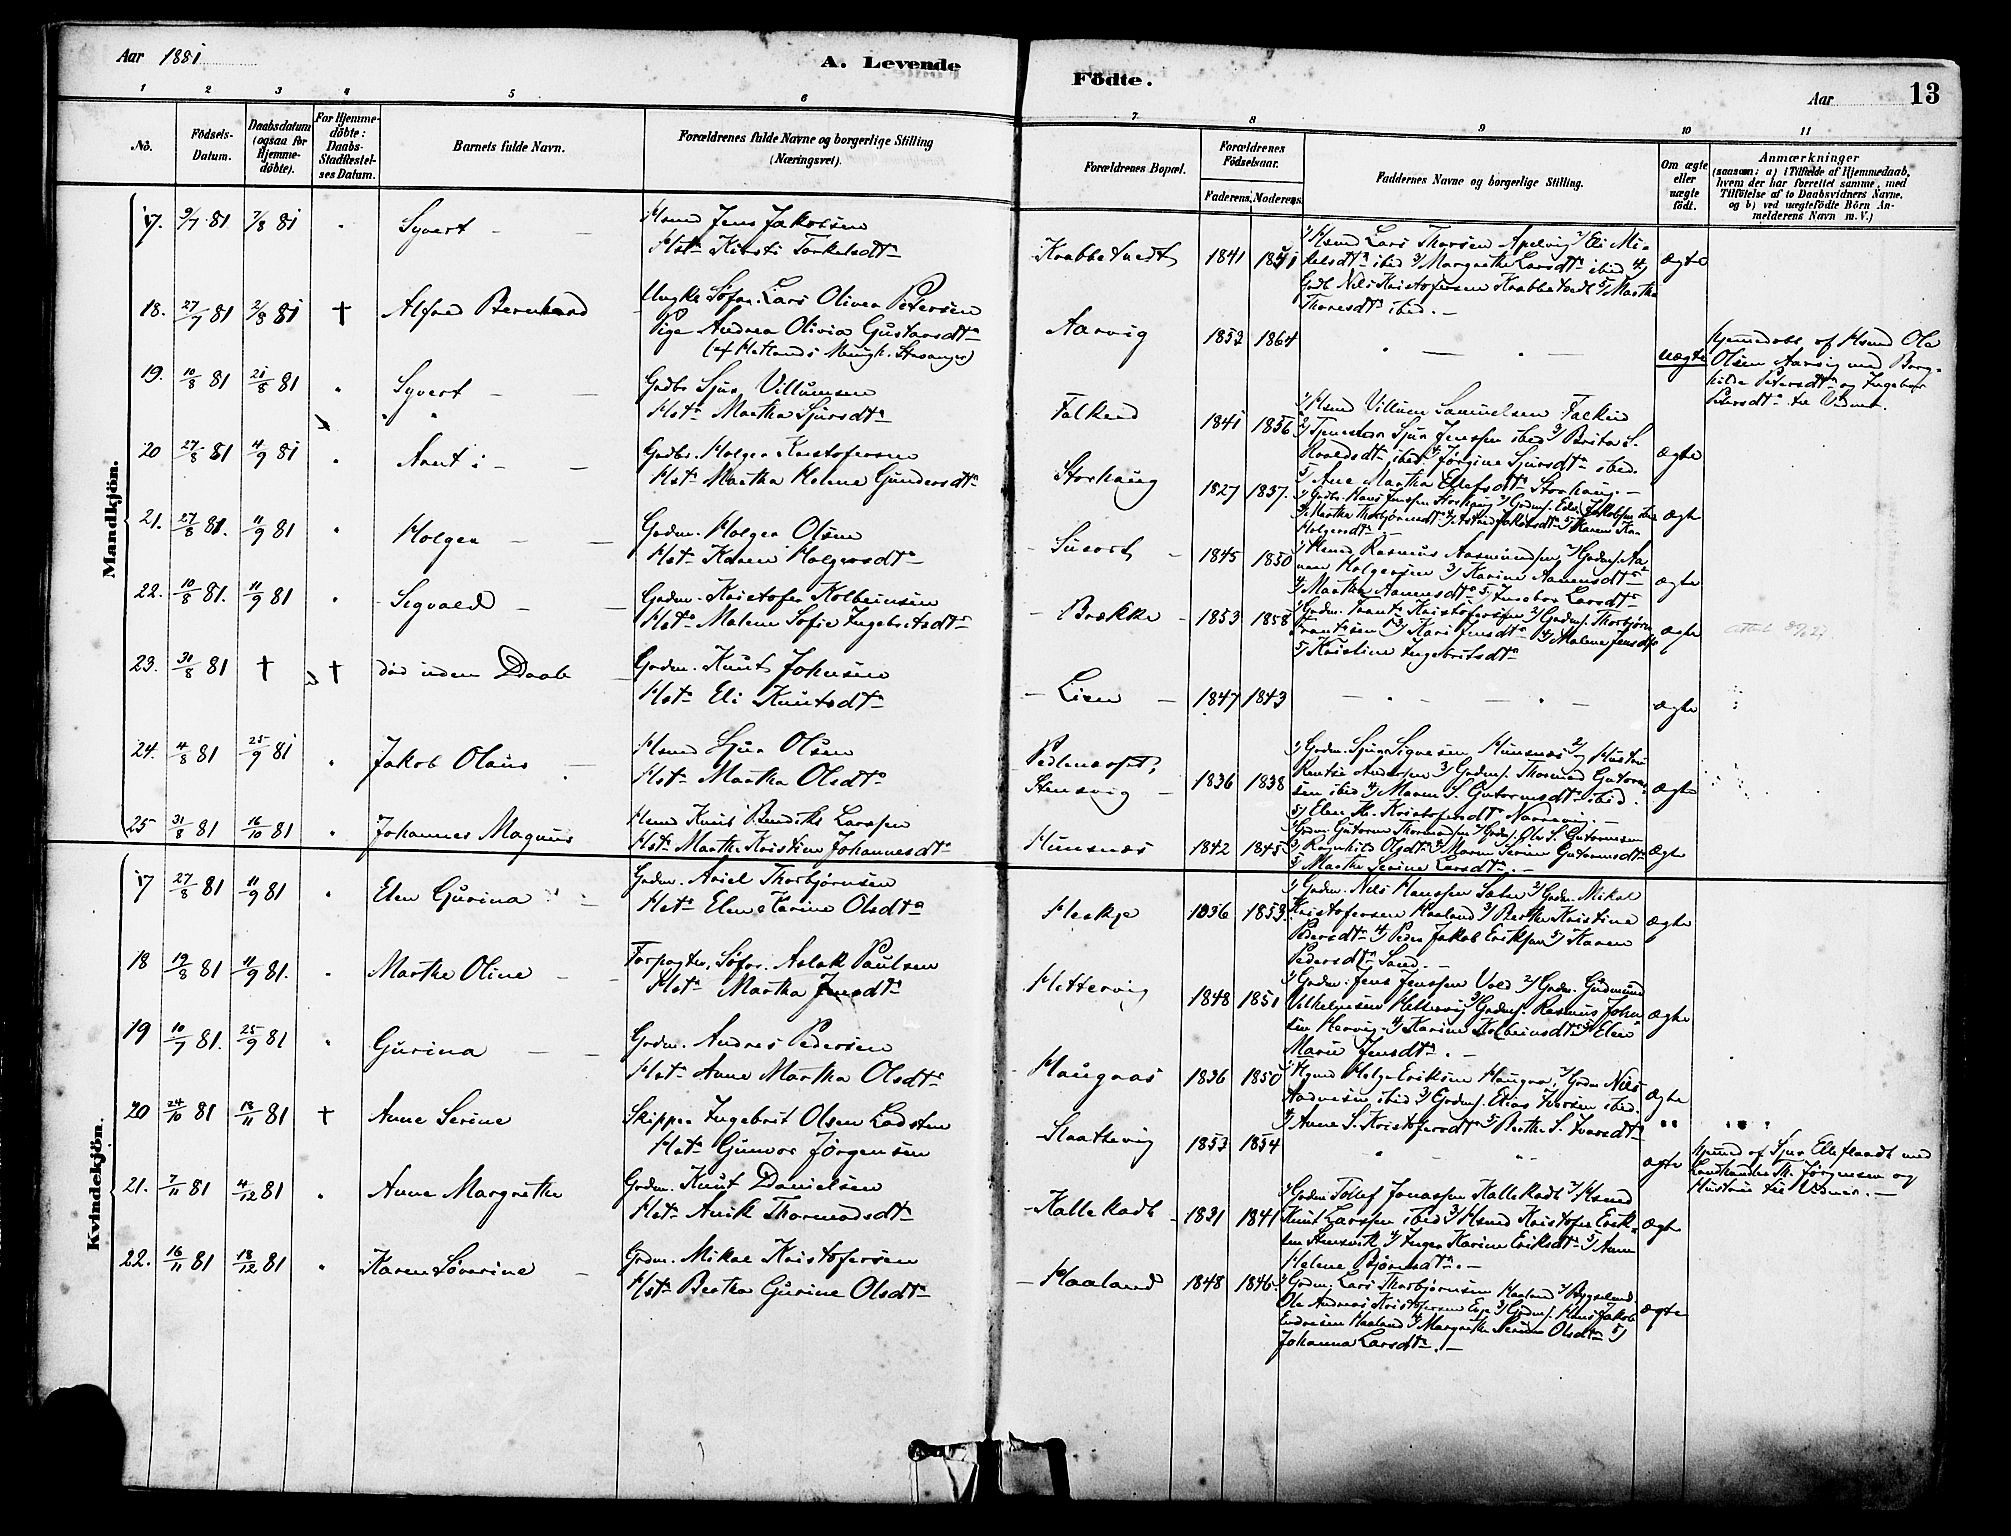 Aar 1881
A. Levende
Födte.
Aar
13
1 2 3 4 5 6 7 8 9 10 11
No.
Födsels-
Datum.
Daabsdatum
(ogsaa for
Hjemme-
döbte).
For Hjemme-
döbte:
Daabs-
Stadfæstel-
ses Datum.
Barnets fulde Navn.
Forældrenes fulde Navne og borgerlige Stilling
(Næringsvei).
Forældrenes Bopæl.
Forældrenes
Födselsaar.
Faderens. Moderens.
Faddernes Navne og borgerlige Stilling.
Om ægte
eller
uægte
födt.
Anmærkninger
(saasom: a) i Tilfælde af Hjemmedaab,
hvem der har forrettet samme, med
Tilföielse af to Daabsvidners Navne,
og b) ved uægtefödte Börn An-
melderens Navn m. V.)
Mandkjön.
17. 9/7 81 7/8 81 Syvert
Hsmd Jens Jakobsen
Hst. Kirsti Torkelsdt.
Krabbetvedt 1841
1) Hsmd Lars Thorsen Apelvig 2) Eli Mi-
kelsdt. ibid 3) Margrethe Larsdt. ibid 4)
Gdb. Nils Kristofersen Krabbetvedt 5) Martha
Thoresdt. ibid. —
ægte
18. 27/7 81 2/8 81 † Alfred Bernhard
Ungk. Søfar. Lars Oliver Petersen
Pige Andrea Olivia Gustavsdt.
(af Hetlands Mengh. Stavanger)
Aarvig 1852 1864
uægte
Hjemmedøbt af Hsmd Ola
Olsen Aarvig med Borg-
hilde Petersdt. og Ingebor
Petersdt. til Vidner.
19. 10/8 81 21/8 81 Syvert
Gdbr. Sjur Villumsen
Hst. Martha Sjursdt.
Falkeid 1841 1856
1) Hsmd Villum Samuelsen Falkeid
2) Tjenestkar Sjur Jenssen ibid 3) Brita S.
Roaldsdt. ibid. 4) Jørgine Sjursdt. ibid.
5) Ane Martha Ellefsdt. Storhaug. —
ægte
20 27/8 81 4/9 81
Gdbr. Holger Kristofersen
Hst. Martha Helene Gundersdt.
Storhaug 1827 1857.
1) Gdbr. Hans Jenssen Storhaug
Holgersdt.
ægte
21. 27/8 81. 11/9 81 Holger
Grdm. Holger Olsen
Hst. Karen Holgersdt.
Susort 1845 1850
1) Hsmd Rasmus Aasmundsen
Holgersen 3) Karine Aanensdt.
4) Martha Aanensdt. 5) Ingebor Larsdt.
ægte
22. 10/8 81. 11/9 81 Sigvald
Grdm. Kristofer Kolbeinsen
Hst. Malene Sofie Ingebritsdt.
Brække 1853 1858
1) Grdm. Trants Kristofersen 2) Grdms. Thorbjørn
Trantsen 3) Kari Jensdt. 4) Malene Jensdt.
5) Kristine Ingebritsdt.
ægte
23. 31/8 81 † † død uden Daab
Grdm. Knut Johnsen
Hst. Eli Knutsdt.
Lien 1847 1843
ægte
24. 4/8 81 25/9 81 Jakob Olaus
Hsmd Sjur Olsen
Hst. Martha Olsdt.
Stensvig 1836 1838
1) Grdm. Sjur Sigvesen Hunsnæs 2) Hustru
3) Grdms. Thormod Gutorm-
sen ibid 4) Maren S. Gutormsdt. ibid.
5) Elen K. Kristofersdt.
ægte
25 31/8 81 16/10 81 Johannes Magnus
Hsmd Knut Bendiks Larssen
Hst. Marthe Kristine Johannesdt.
Hunsnæs 1842 1845
1) Grdm. Gutorm Thormodsen 2) Grdms. Ole S. Gutormsen
3) Ragnhild Olsdt. 4) Maren Serine Gutormsdt.
5) Marthe Serine Larsdt. —
ægte
Kvindekjön.
17 27/8 81 11/9 81 Elen Gurina
Grdm. Aviel Thorbjørnsen
Hst. Elen Karine Olsdt.
Heskje 1836 1853.
1) Grdm. Nils Hanssen 2) Grdm. Mikal
Kristofersen Haaland 3) Berthe Kristine
Pedersdt. 4) Peder Jakob Eriksen 5) Karen
Pedersdt. Sand. —
ægte
18 19/8 81 11/9 81. Marthe Oline
Forpagter, Søfar. Aslak Paulsen
Hst. Martha Jensdt.
Hettervig 1848 1851
1) Grdm. Jens Jenssen Vold 2) Grdm. Gudmund
Vilhelmsen Hettervig 3) Grdms. Rasmus John-
sen Hervig. 4) Karine Kolbeinsdt. 5) Elen
Marie Jensdt. —
ægte
19 10/7 81. 25/9 81 Gurina
Grdm. Andres Pedersen
Hst. Anne Martha Olsdt.
Haugaas 1836 1850
1) Hsmd Helge Eriksen Haugaas, 2) Grdm Nils
Andresen ibid 3) Grdms. Elias Iversen ibid.
4) Anne S. Kristofersdt. 5) Berthe S. Iversdt.
ægte
20 24/10 81 13/11 81 † Anne Serine
Skipper Ingebrit Olsen Ladsten
Hst. Gunvor Jørgensen
Slaattevig 1853 1854
ægte
Hjemmed. af Sjur Elleflaadt med
Landhandler Th. Jørgensen og
Hustru til Vidner. —
21. 7/11 81 4/12 81 Anne Margrethe
Grdm. Knut Danielsen
Hst. Anik Thormodsdt.
Kallekodt 1831 1841
1) Grdm Tollef Jonassen Kallekodt 2) Hsmd
Knut Larssen ibid 3) Hsmd Kristofer Erik-
sen Stensvik 4) Inger Karine Eriksdt. 5) Anne
Helene Bjørnsdt. —
ægte
22. 16/11 81 18/12 81 Karen Severine
Grdm. Mikal Kristofersen
Hst. Berthe Gurine Olsdt.
Haaland 1848 1846.
1) Grdm. Lars Thorbjørnsen Haaland
Ole Andreas Kristofersen Eeje 3) Grdms. Hans Jakob
Endresen Haaland 4) Margrethe Serine Olsdt. 5)
Johanna Larsdt. —
ægte